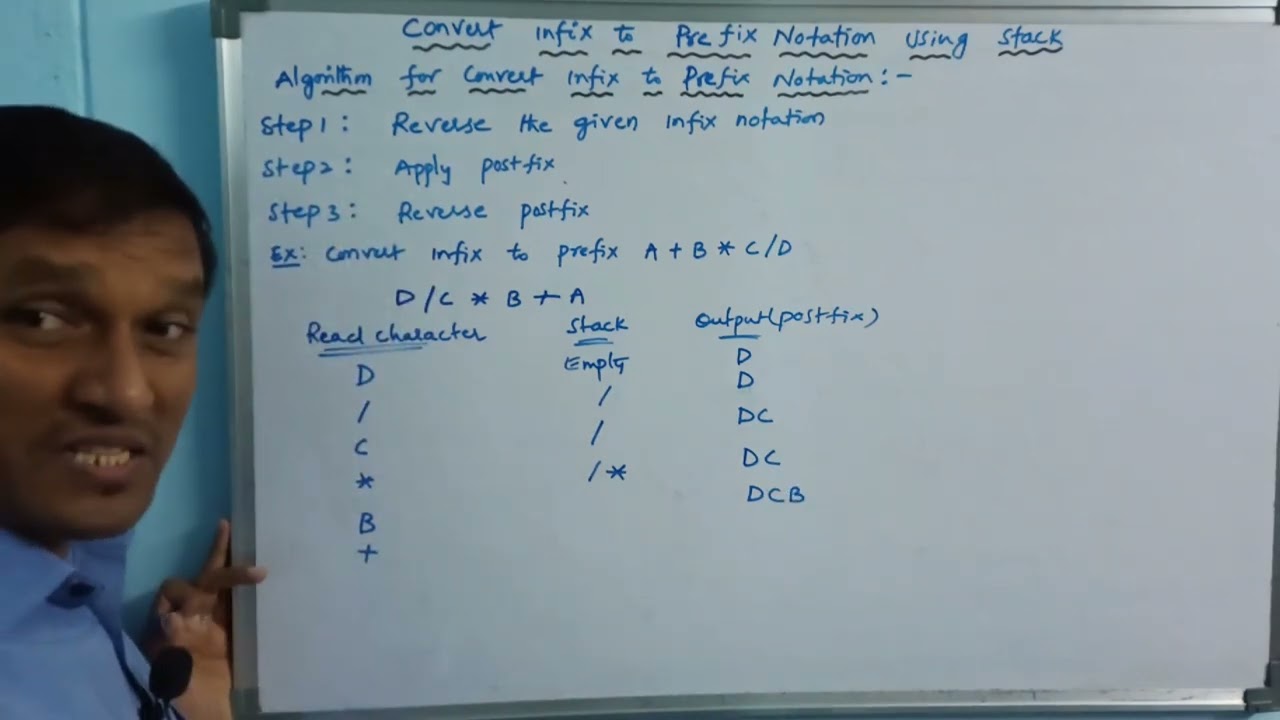 Convert Infix to Prefix Notation Using Stack
Algorithm for Convert Infix to Prefix Notation:-
Step1: Reverse the given Infix notation
Step2: Apply postfix.
Step3: Reverse postfix
Ex: Convert infix to prefix A + B * C/D
D/C * B + A
Read character Stack Output(postfix)
D Empty D
/ / D
C / DC
* /* DC
B DCB
+